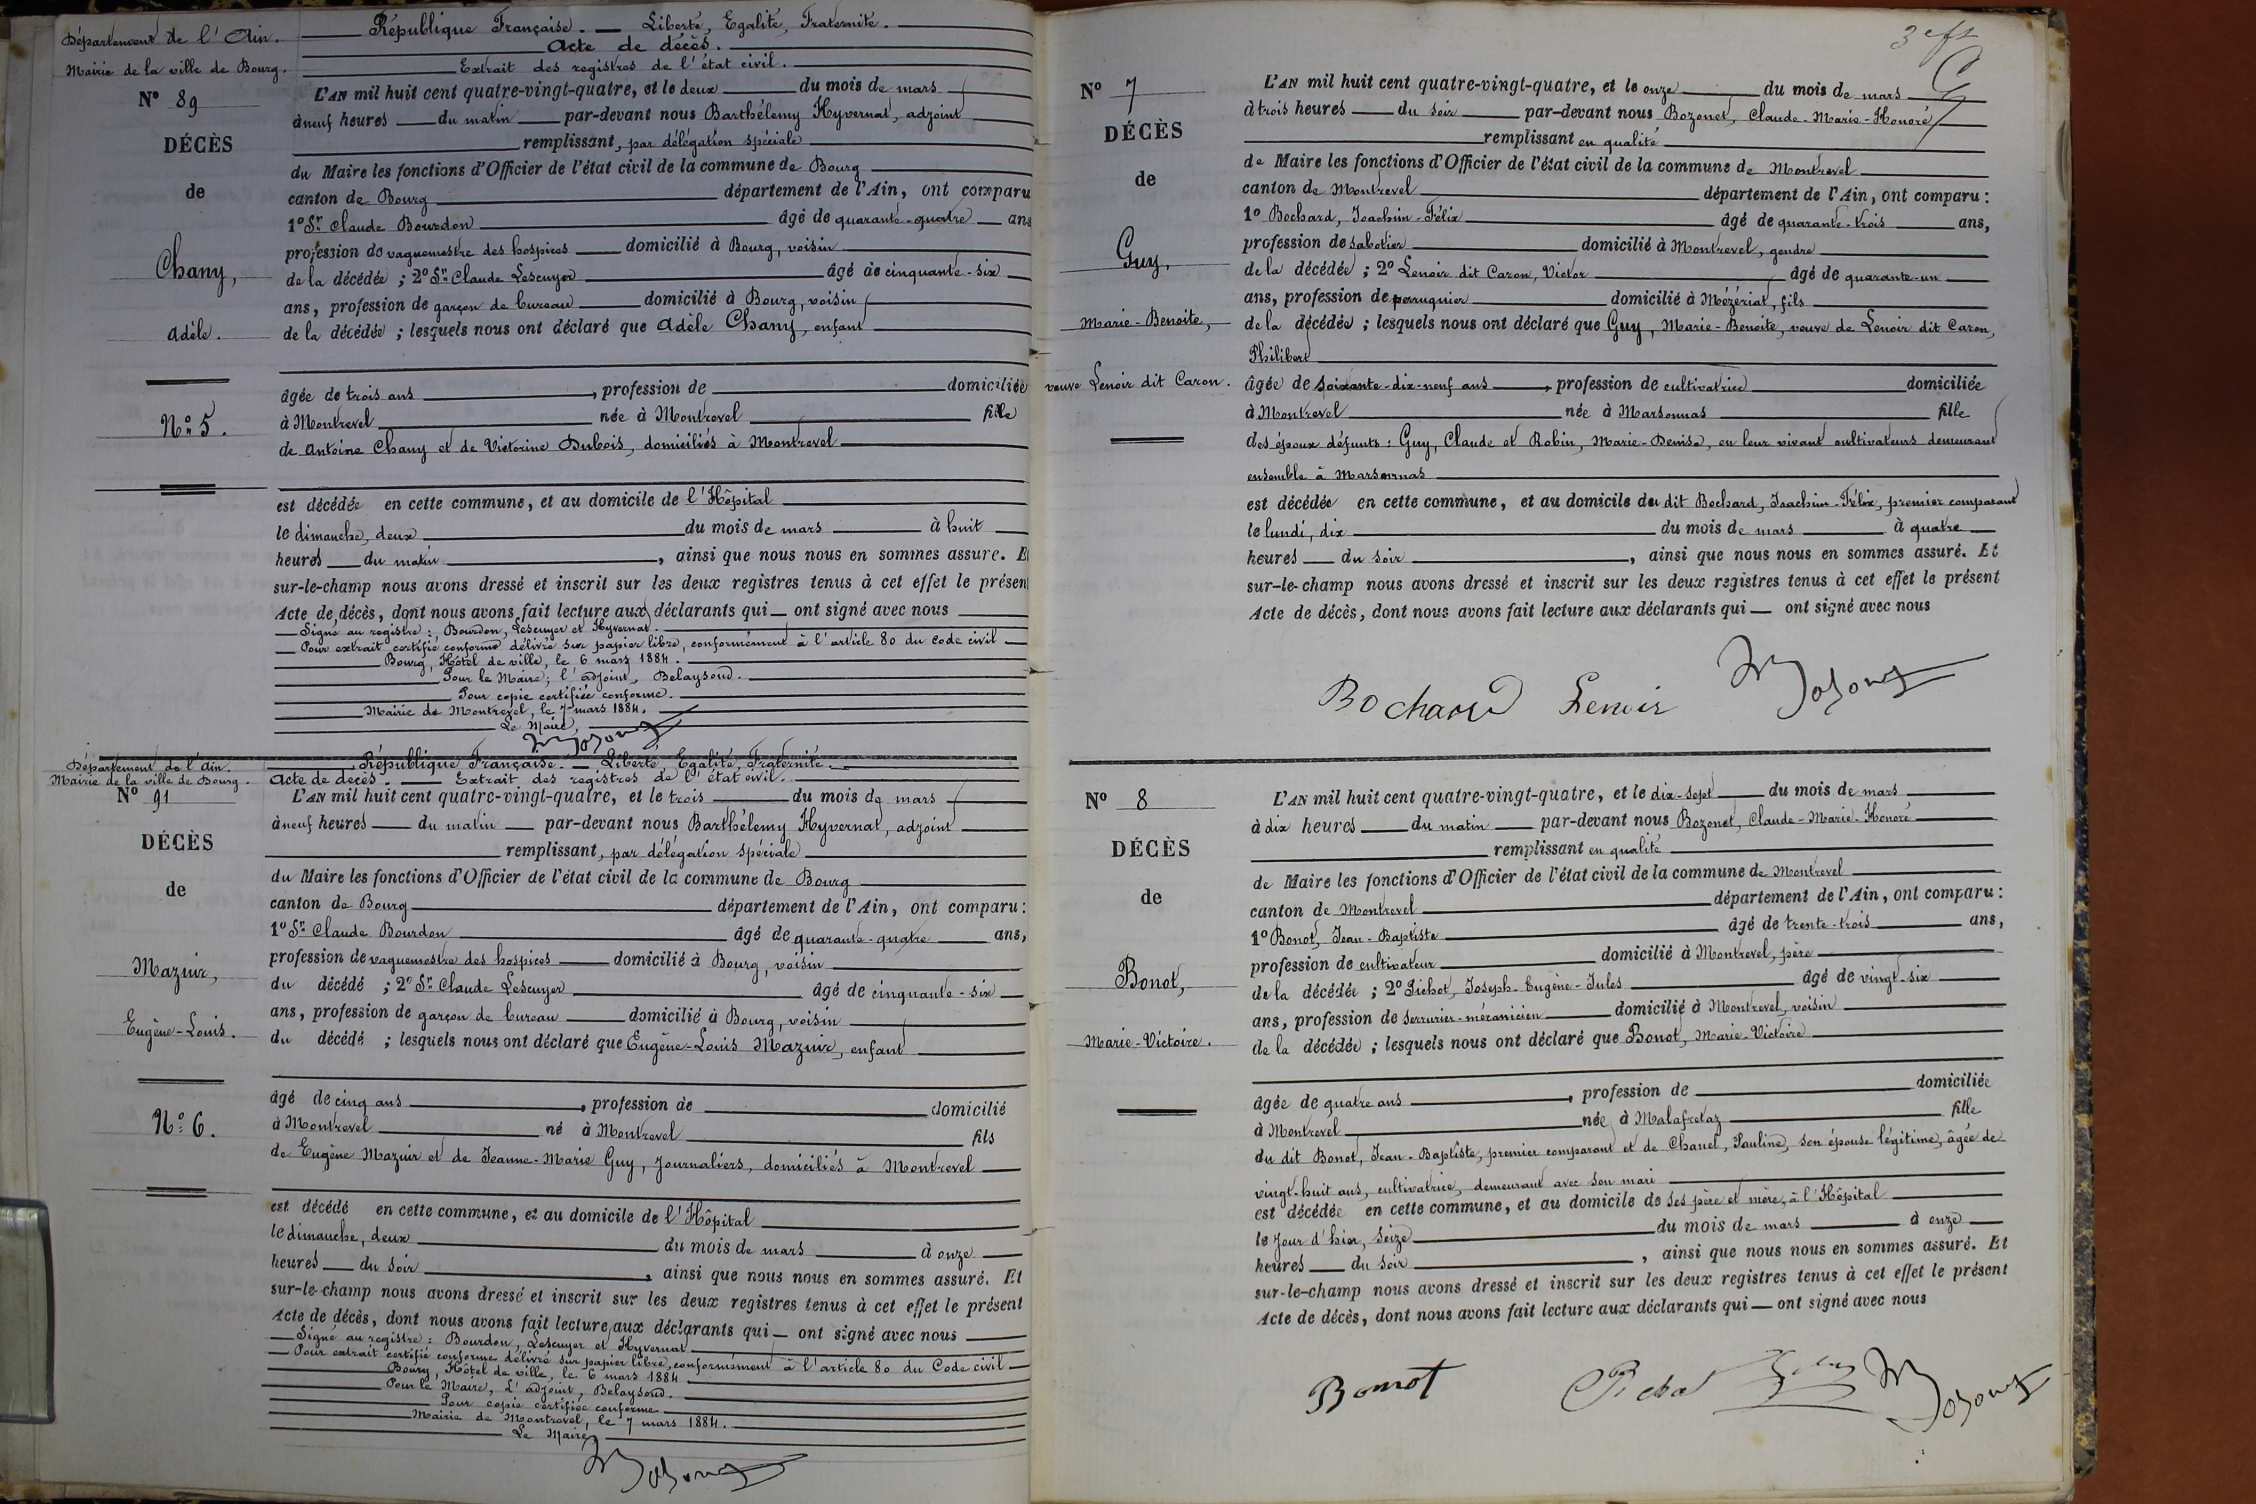 Département de l'Ain.
Mairie de la ville de Bourg.
République Française. — Liberté, Egalité, Fraternité.
Acte de décès.
Extrait des registres de l'état civil.
N° 89
DÉCÈS
de
Chany,
Adèle.
N° 5.
L'AN mil huit cent quatre-vingt-quatre, et le deux du mois de mars
à neuf heures du matin par-devant nous Barthélemy Hyvernat, adjoint
remplissant, par délégation spéciale
du Maire les fonctions d'Officier de l'état civil de la commune de Bourg
canton de Bourg département de l'Ain, ont comparu
1° Sr Claude Bourdon âgé de quarante-quatre ans
profession de vaguemestre des hospices domicilié à Bourg, voisin
de la décédée ; 2° Sr Claude Lescuyer âgé de cinquante-six
ans, profession de garçon de bureau domicilié à Bourg, voisin
de la décédée ; lesquels nous ont déclaré que Adèle Chany, enfant
âgée de trois ans, profession de domiciliée
à Montrevel née à Montrevel fille
de Antoine Chany et de Victorine Dubois, domiciliés à Montrevel
est décédée en cette commune, et au domicile de l'Hôpital
le dimanche, deux du mois de mars à huit
heures du matin, ainsi que nous nous en sommes assuré. Et
sur-le-champ nous avons dressé et inscrit sur les deux registres tenus à cet effet le présent
Acte de décès, dont nous avons fait lecture aux déclarants qui — ont signé avec nous
Signé au registre : Bourdon, Lescuyer et Hyvernat.
Pour extrait certifié conforme délivré sur papier libre, conformément à l'article 80 du Code civil
Bourg, Hôtel de ville, le 6 mars 1884.
Pour le Maire; l'adjoint, Belaysoud.
Pour copie certifiée conforme.
Mairie de Montrevel, le 7 mars 1884.
Le Maire,
Département de l'Ain.
Mairie de la ville de Bourg.
République Française. — Liberté, Egalité, Fraternité.
Acte de décès. — Extrait des registres de l'état civil.
N° 91
DÉCÈS
de
Mazuir,
Eugène-Louis.
N° 6.
L'AN mil huit cent quatre-vingt-quatre, et le trois du mois de mars
à neuf heures du matin par-devant nous Barthélemy Hyvernat, adjoint
remplissant, par délégation spéciale
du Maire les fonctions d'Officier de l'état civil de la commune de Bourg
canton de Bourg département de l'Ain, ont comparu :
1° Sr Claude Bourdon âgé de quarante-quatre ans,
profession de vaguemestre des hospices domicilié à Bourg, voisin
du décédé ; 2° Sr Claude Lescuyer âgé de cinquante-six
ans, profession de garçon de bureau domicilié à Bourg, voisin
du décédé ; lesquels nous ont déclaré que Eugène-Louis Mazuir, enfant
âgé de cinq ans, profession de domicilié
à Montrevel né à Montrevel fils
de Eugène Mazuir et de Jeanne-Marie Guy, journaliers, domiciliés à Montrevel
est décédé en cette commune, et au domicile de l'Hôpital
le dimanche, deux du mois de mars à onze
heures du soir, ainsi que nous nous en sommes assuré. Et
sur-le-champ nous avons dressé et inscrit sur les deux registres tenus à cet effet le présent
Acte de décès, dont nous avons fait lecture aux déclarants qui — ont signé avec nous
Signé au registre : Bourdon, Lescuyer et Hyvernat
Pour extrait certifié conforme délivré sur papier libre, conformément à l'article 80 du Code civil
Bourg, Hôtel de ville, le 6 mars 1884
Pour le Maire, L'adjoint, Belaysoud.
Pour copie certifiée conforme
Mairie de Montrevel, le 7 mars 1884.
Le Maire,
N° 7
DÉCÈS
de
Guy,
Marie-Benoite,
veuve Lenoir dit Caron.
L'AN mil huit cent quatre-vingt-quatre, et le onze du mois de mars
à trois heures du soir par-devant nous Bozonet, Claude-Marie-Honoré
remplissant en qualité
de Maire les fonctions d'Officier de l'état civil de la commune de Montrevel
canton de Montrevel département de l'Ain, ont comparu :
1° Bochard, Joachim-Félix âgé de quarante-trois ans,
profession de sabotier domicilié à Montrevel, gendre
de la décédée ; 2° Lenoir dit Caron, Victor âgé de quarante-un
ans, profession de perruquier domicilié à Mézériat, fils
de la décédée ; lesquels nous ont déclaré que Guy, Marie-Benoite, veuve de Lenoir dit Caron,
Philibert
âgée de soixante-dix-neuf ans, profession de cultivatrice domiciliée
à Montrevel née à Marsonnas fille
des époux défunts : Guy, Claude et Robin, Marie-Denise, en leur vivant cultivateurs demeurant
ensemble à Marsonnas
est décédée en cette commune, et au domicile du dit Bochard, Joachim-Félix, premier comparant
le lundi, dix du mois de mars à quatre
heures du soir, ainsi que nous nous en sommes assuré. Et
sur-le-champ nous avons dressé et inscrit sur les deux registres tenus à cet effet le présent
Acte de décès, dont nous avons fait lecture aux déclarants qui — ont signé avec nous
Bochard Lenoir
N° 8
DÉCÈS
de
Bonot,
Marie-Victoire.
L'AN mil huit cent quatre-vingt-quatre, et le dix-sept du mois de mars
à dix heures du matin par-devant nous Bozonet, Claude-Marie-Honoré
remplissant en qualité
de Maire les fonctions d'Officier de l'état civil de la commune de Montrevel
canton de Montrevel département de l'Ain, ont comparu :
1° Bonot, Jean-Baptiste âgé de trente-trois ans,
profession de cultivateur domicilié à Montrevel, père
de la décédée ; 2° Pichot, Joseph-Eugène-Jules âgé de vingt-six
ans, profession de serrurier-mécanicien domicilié à Montrevel, voisin
de la décédée ; lesquels nous ont déclaré que Bonot, Marie-Victoire
âgée de quatre ans, profession de domiciliée
à Montrevel née à Malafretaz fille
du dit Bonot, Jean-Baptiste, premier comparant et de Chanel, Pauline, son épouse légitime, âgée de
vingt-huit ans, cultivatrice, demeurant avec son mari
est décédée en cette commune, et au domicile de ses père et mère, à l'Hôpital
le jour d'hier, seize du mois de mars à onze
heures du soir, ainsi que nous nous en sommes assuré. Et
sur-le-champ nous avons dressé et inscrit sur les deux registres tenus à cet effet le présent
Acte de décès, dont nous avons fait lecture aux déclarants qui — ont signé avec nous
Bonot Pichot